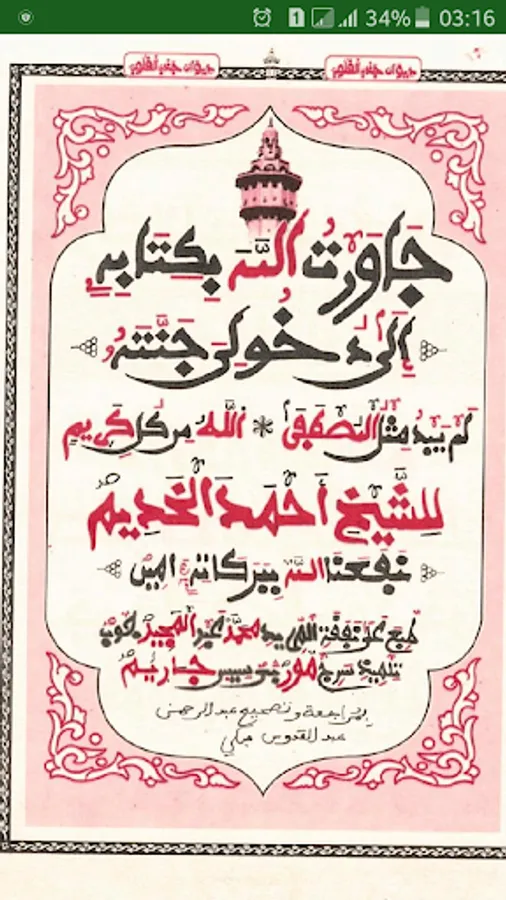 34% 03:16
ديوان جذب القلوب ديوان جذب القلوب
جَاوَرْتُ اللَّهَ بِكِتَابِهِ
إِلَىٰ دُخُولِي جَنَّتَهُ
لم يبد مثل المصطفى * الله من كل كريم
للشَّيخ أَحْمَدَ الخَدِيم
نفعنا الله ببركاته آمين
طبع على نفقة المريد محمد عبد المجيد
تلميذ سرج مور
بمراجعة وتصحيح عبد الرحمن
عبد القدوس